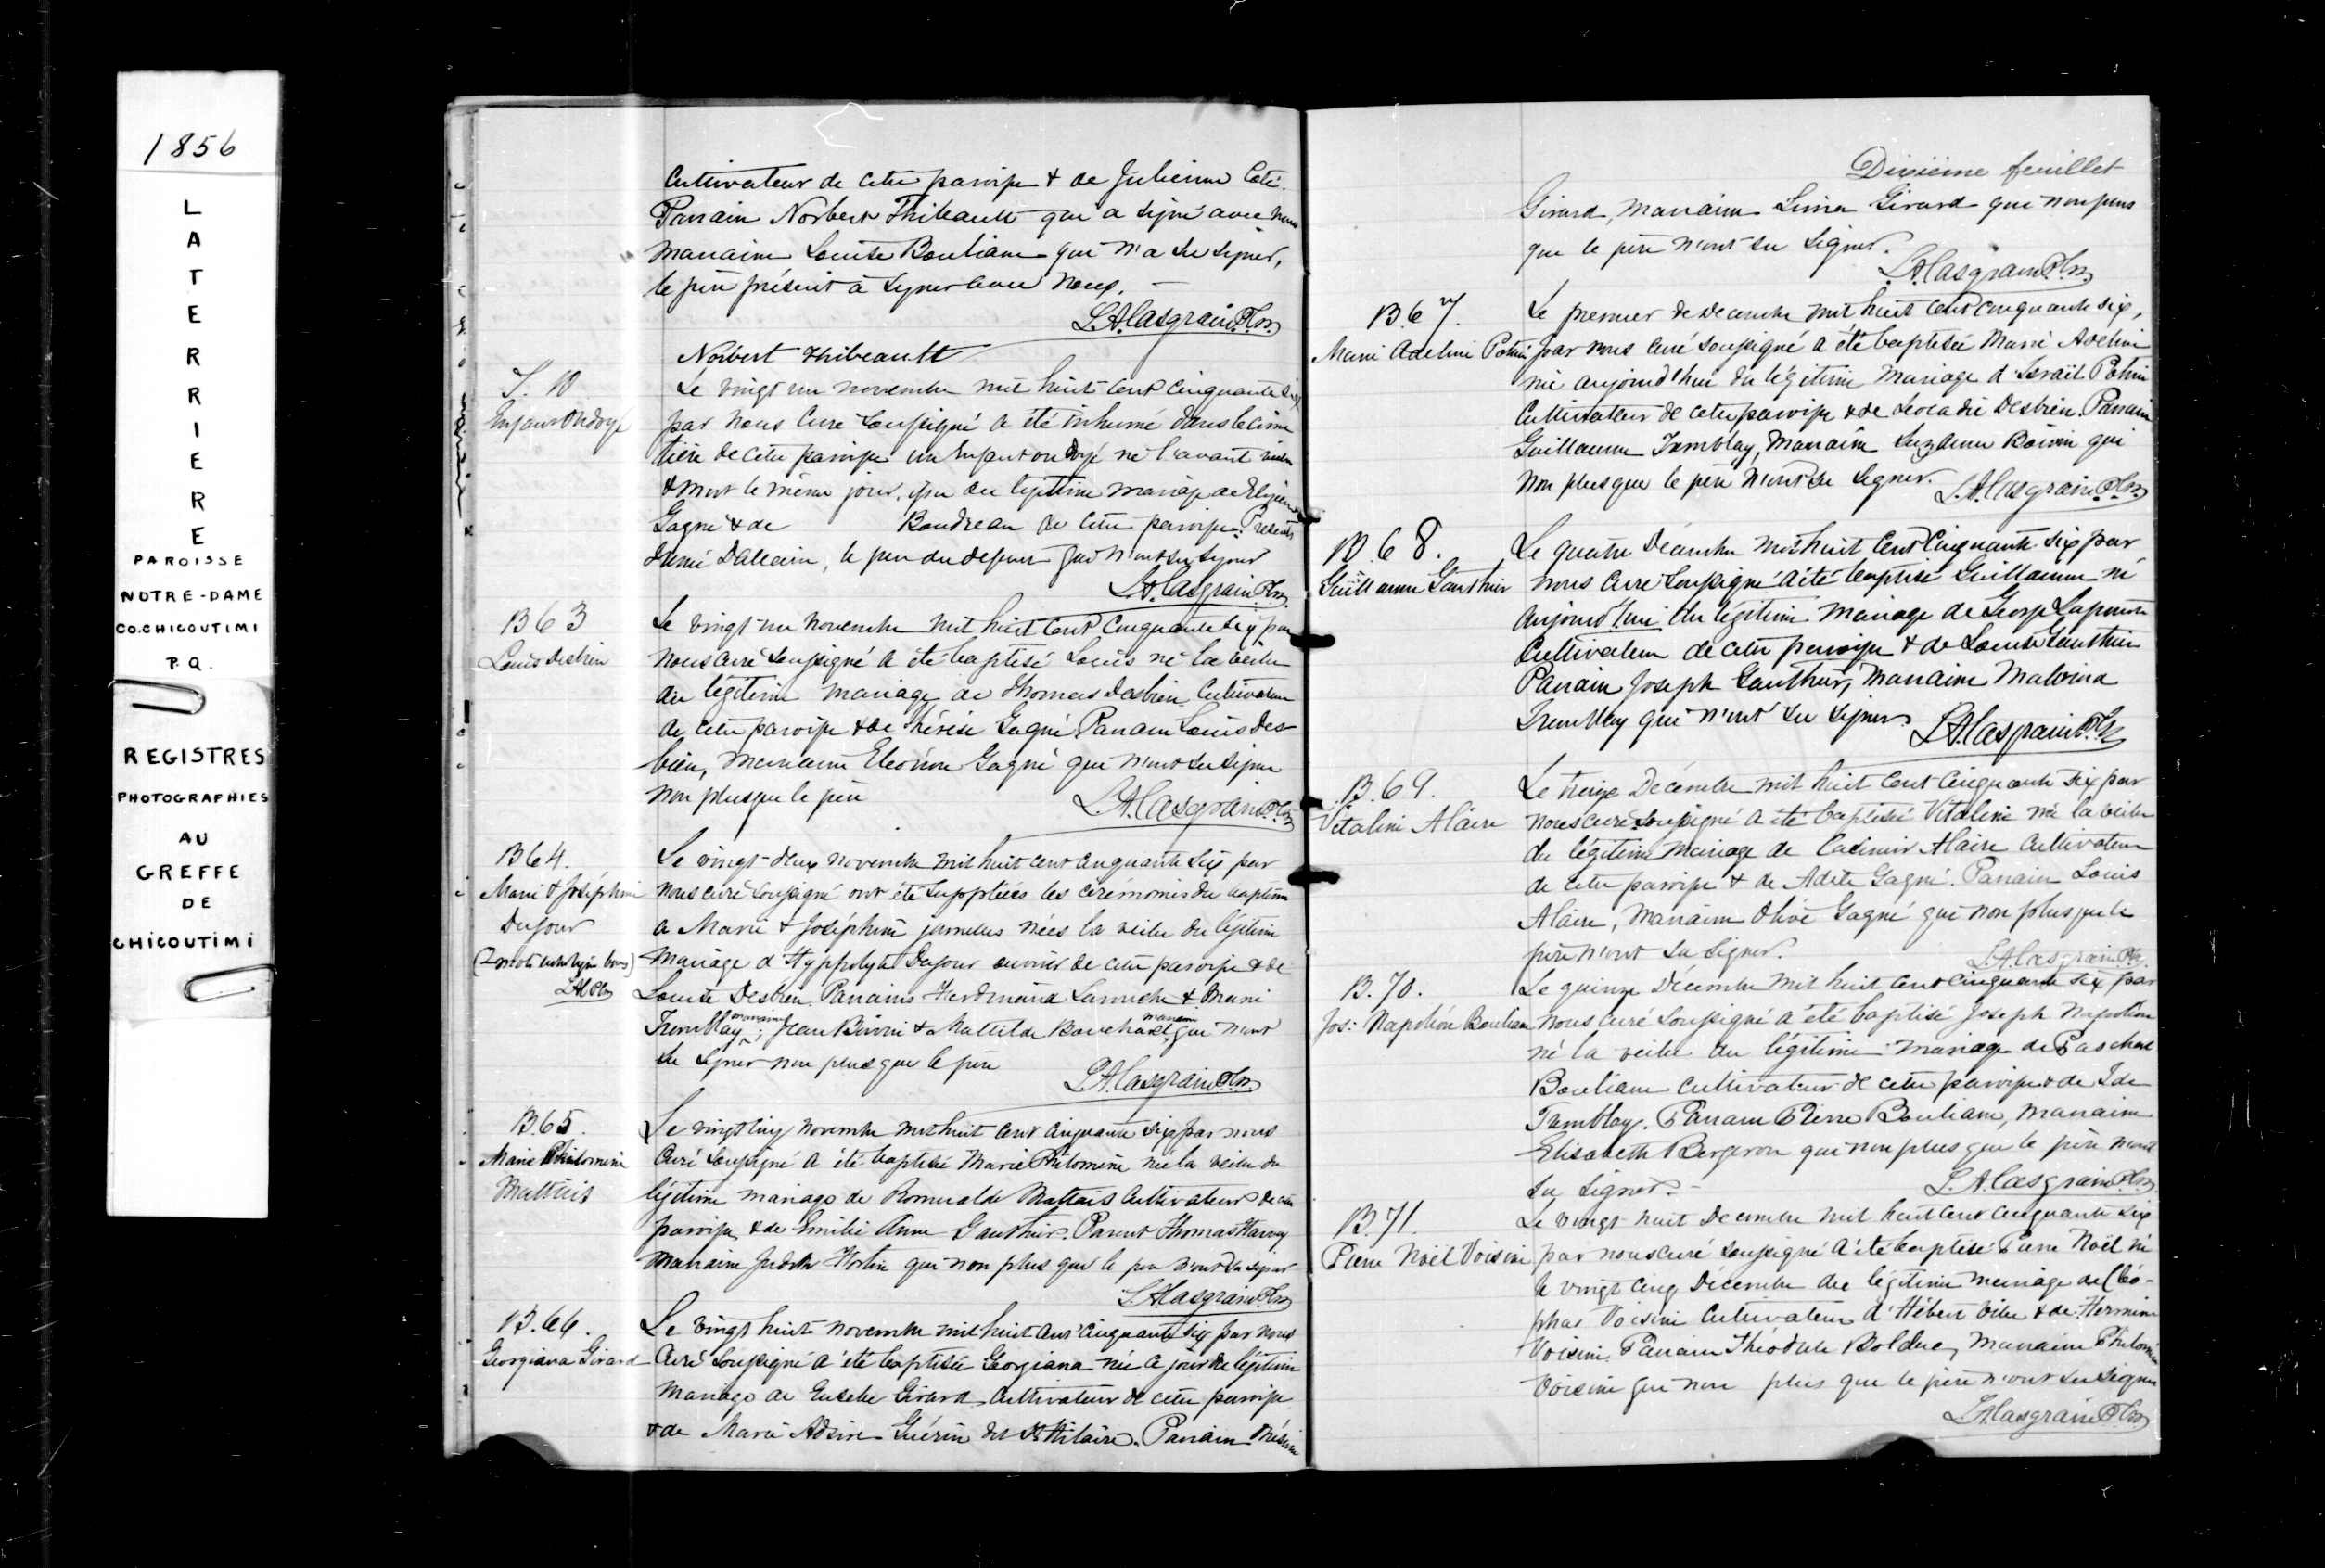 1856
L
A
T
E
R
R
I
E
R
E
PAROISSE
NOTRE-DAME
CO. CHICOUTIMI
P.Q.
REGISTRES
PHOTOGRAPHIES
AU
GREFFE
DE
CHICOUTIMI
Cultivateur de cette paroisse & de Julienne Coté.
Parrain Norbert Thibeault qui a signé avec nous
marraine Louise Bouliane qui n'a su signer,
le père présent a signer avec nous.
L.A. Casgrain Ptre
Norbert Thibeault
S. 10
Enfant Ondoyé
Le vingt un novembre mil huit cent cinquante six
par nous Curé soussigné a été inhumé dans le cime
tière de cette paroisse un Enfant ondoyé né l'avant veille
& mort le même jour, issu du légitime mariage de
Gagné & de Boudreau de cette paroisse. Présents
Dallaire, le père du défunt qui n'ont su signer
L.A. Casgrain Ptre
B 63
Louis Desbien
Le vingt-un novembre mil huit cent cinquante six par
nous curé soussigné a été baptisé Louis né la veille
du légitime mariage de Thomas Desbien Cultivateur
de cette paroisse & de Thérèse Gagné. Parrain Louis Des
bien, marraine Eleonore Gagné qui n'ont su signer
non plus que le père
L.A. Casgrain Ptre
B 64.
Marie & Joséphine
Dufour
Le vingt-deux novembre mil huit cent cinquante six par
nous curé soussigné ont été suppléées les cérémonies du baptême
a Marie & Joséphine jumelles nées la veille du légitime
mariage d'Hyppolyte Dufour ouvrier de cette paroisse & de
Louise Desbien. Parrains Ferdinand Larouche & Marie
Tremblay marraine; Jean Boivin & Mathilde Bouchard marraine qui n'ont
su signer non plus que le père
L.A. Casgrain Ptre
B. 65.
Marie Philomène
Mattais
Le vingt cinq novembre mil huit cent cinquante six par nous
Curé soussigné a été baptisée Marie Philomène née la veille du
légitime mariage de Romualde Mattais Cultivateur de cette
paroisse & de Emilie Anne Gauthier. Parent Thomas Harvey
marraine Judith Fortin qui non plus que le père n'ont su signer
L.A. Casgrain Ptre
B. 66.
Georgiana Girard
Le vingt huit novembre mil huit cent cinquante six par nous
Curé soussigné a été baptisée Georgiana née ce jour du légitime
mariage de Eusebe Girard Cultivateur de cette paroisse
& de Marie Adsire Guérin dit St Hilaire. Parrain Onésime
Dixième feuillet
Girard, marraine Lina Girard qui non plus
que le père n'ont su signer.
L.A. Casgrain Ptre
B. 67.
Marie Adeline Potvin
Le premier de décembre mil huit cent cinquante six,
par nous curé soussigné a été baptisée Marie Adeline
née aujourd'hui du légitime mariage d'Israël Potvin
Cultivateur de cette paroisse & de Leocadie Desbien. Parrain
Guillaume Tremblay, Marraine Suzanne Boivin qui
non plus que le père n'ont su signer.
L.A. Casgrain Ptre
B. 68.
Guillaume Gauthier
Le quatre Décembre mil huit cent cinquante six par
nous curé soussigné a été baptisé Guillaume né
aujourd'hui du légitime mariage de George Lapointe
Cultivateur de cette paroisse & de Louise Gauthier
Parrain Joseph Gauthier, marraine Malvina
Tremblay qui n'ont su signer.
L.A. Casgrain Ptre
B. 69.
Vitaline Alaire
Le treize Décembre mil huit cent cinquante six par
nous curé soussigné a été baptisée Vitaline née la veille
du légitime mariage de Casimir Alaire Cultivateur
de cette paroisse & de Adèle Gagné. Parrain Louis
Alaire, marraine Olive Gagné qui non plus que le
père n'ont su signer.
L.A. Casgrain Ptre
B. 70.
Jos: Napoléon Bouliane
Le quinze Décembre mil huit cent cinquante six par
nous curé soussigné a été baptisé Joseph Napoléon
né la veille du légitime mariage de Paschal
Bouliane cultivateur de cette paroisse & de Ide
Tremblay. Parrain Pierre Bouliane, marraine
Elisabeth Bergeron qui non plus que le père n'ont
su signer.
L.A. Casgrain Ptre
B. 71.
Pierre Noël Voisine
Le vingt huit Decembre mil huit cent cinquante six
par nous curé soussigné a été baptisé Pierre Noël né
le vingt cinq Décembre du légitime mariage de Cléo-
phas Voisine Cultivateur d'Hébert ville & de Hermine
Voisine. Parrain Théodule Bolduc, marraine Philomène
Voisine qui non plus que le père n'ont su signer
L.A. Casgrain Ptre